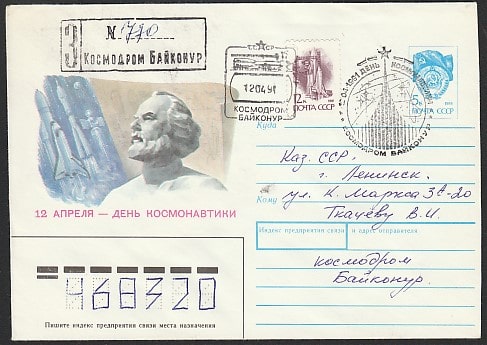 З № 790
Космодром Байконур
СССР
12 04 91
КОСМОДРОМ
БАЙКОНУР
12к
ПОЧТА СССР
5к
ПОЧТА СССР
ДЕНЬ КОСМОНАВТИКИ
КОСМОДРОМ БАЙКОНУР
Куда
Каз. ССР.
г. Ленинск.
ул. К. Маркса 3а-20
Кому
Ткачеву В.И.
12 АПРЕЛЯ — ДЕНЬ КОСМОНАВТИКИ
Индекс предприятия связи и адрес отправителя
космодром
Байконур.
468320
Пишите индекс предприятия связи места назначения